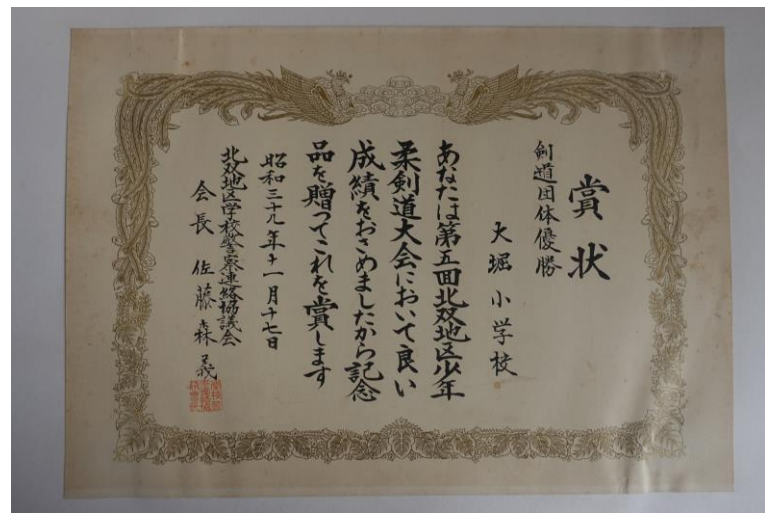 賞状
剣道団体優勝
大堀小学校
あなたは第五回北双地区少年
柔剣道大会において良い
成績をおさめましたから記念
品を贈ってこれを賞します
昭和三十九年十一月十七日
北双地区学校警察連絡協議会
会長 佐藤森義